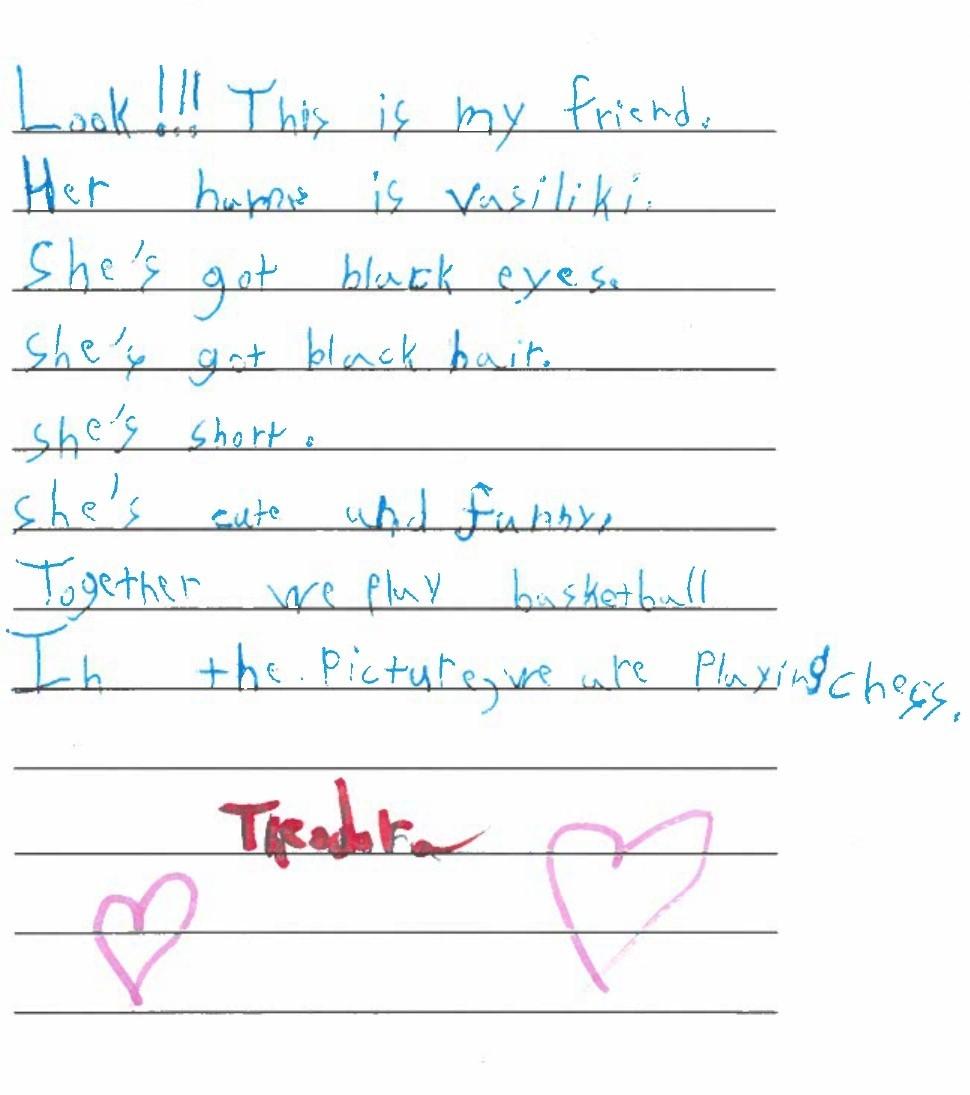 Look!!! This is my friend.
Her name is Vasiliki.
She's got black eyes.
She's got black hair.
she's short.
she's cute and funny.
Together we play basketball
In the picture, we are playing chess.
Theodora